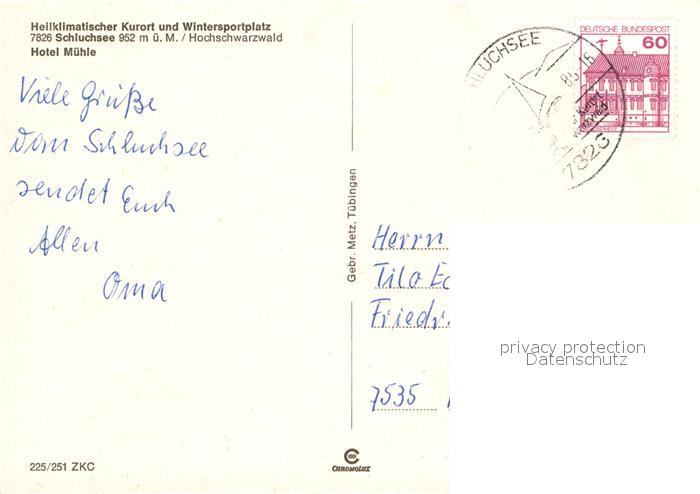 Heilklimatischer Kurort und Wintersportplatz
7826 Schluchsee 952 m ü. M. / Hochschwarzwald
Hotel Mühle
Viele Grüße
vom Schluchsee
sendet Euch
Allen
Oma
225/251 ZKC
Gebr. Metz, Tübingen
CHROMOLUX
DEUTSCHE BUNDESPOST
60
HLUCHSEE
85-16
Kurort
7826
Herrn
Tilo Ec
Friedr.
7535
privacy protection
Datenschutz